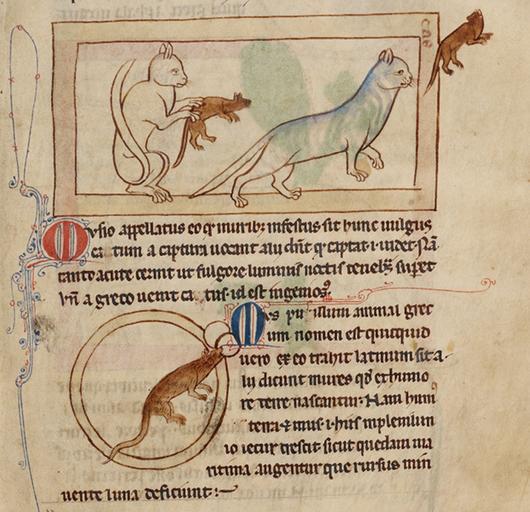 Musio appellatus eo qͥ muribꝫ infestus sit hunc uulgus
ca tum a captura uocant alii dn̄t qͥ captat .i. uidet. Nā
tante acute cernit ut fulgore luminis noctis tenebͣs supet
Vn̄ a greco uenit ca. tus. id est ingeniosꝰ.
Mus pusillum animal grec
um nomen est quicquid
uero ex eo trahit latinum fit a
lii dicunt mures qd̄ ex humo
re terre nascantur. Nam hum
terra ⁊ mus. i. hiis in plenilun
io iecur crescit sicut quedam ma
ritima augentur que rursus min
uente luna deficiunt :—